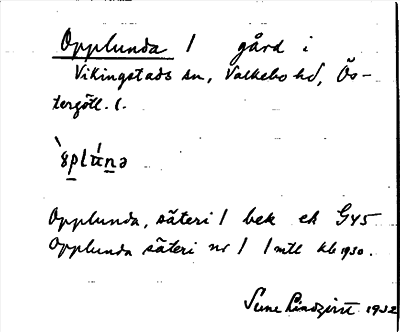 Opplunda 1 gård i
Vikingstads sn, Valkebo hd, Ös-
tergötl. l.
Opplunda, säteri 1 bek ek G45
Opplunda säteri nr 1 1 mtl kb 1930.
Sune Lindqvist 1932